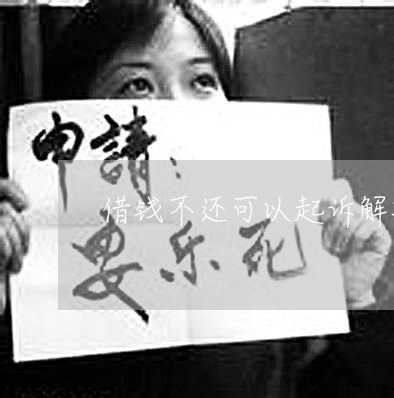 申請：
借钱不还可以起诉解
安乐死